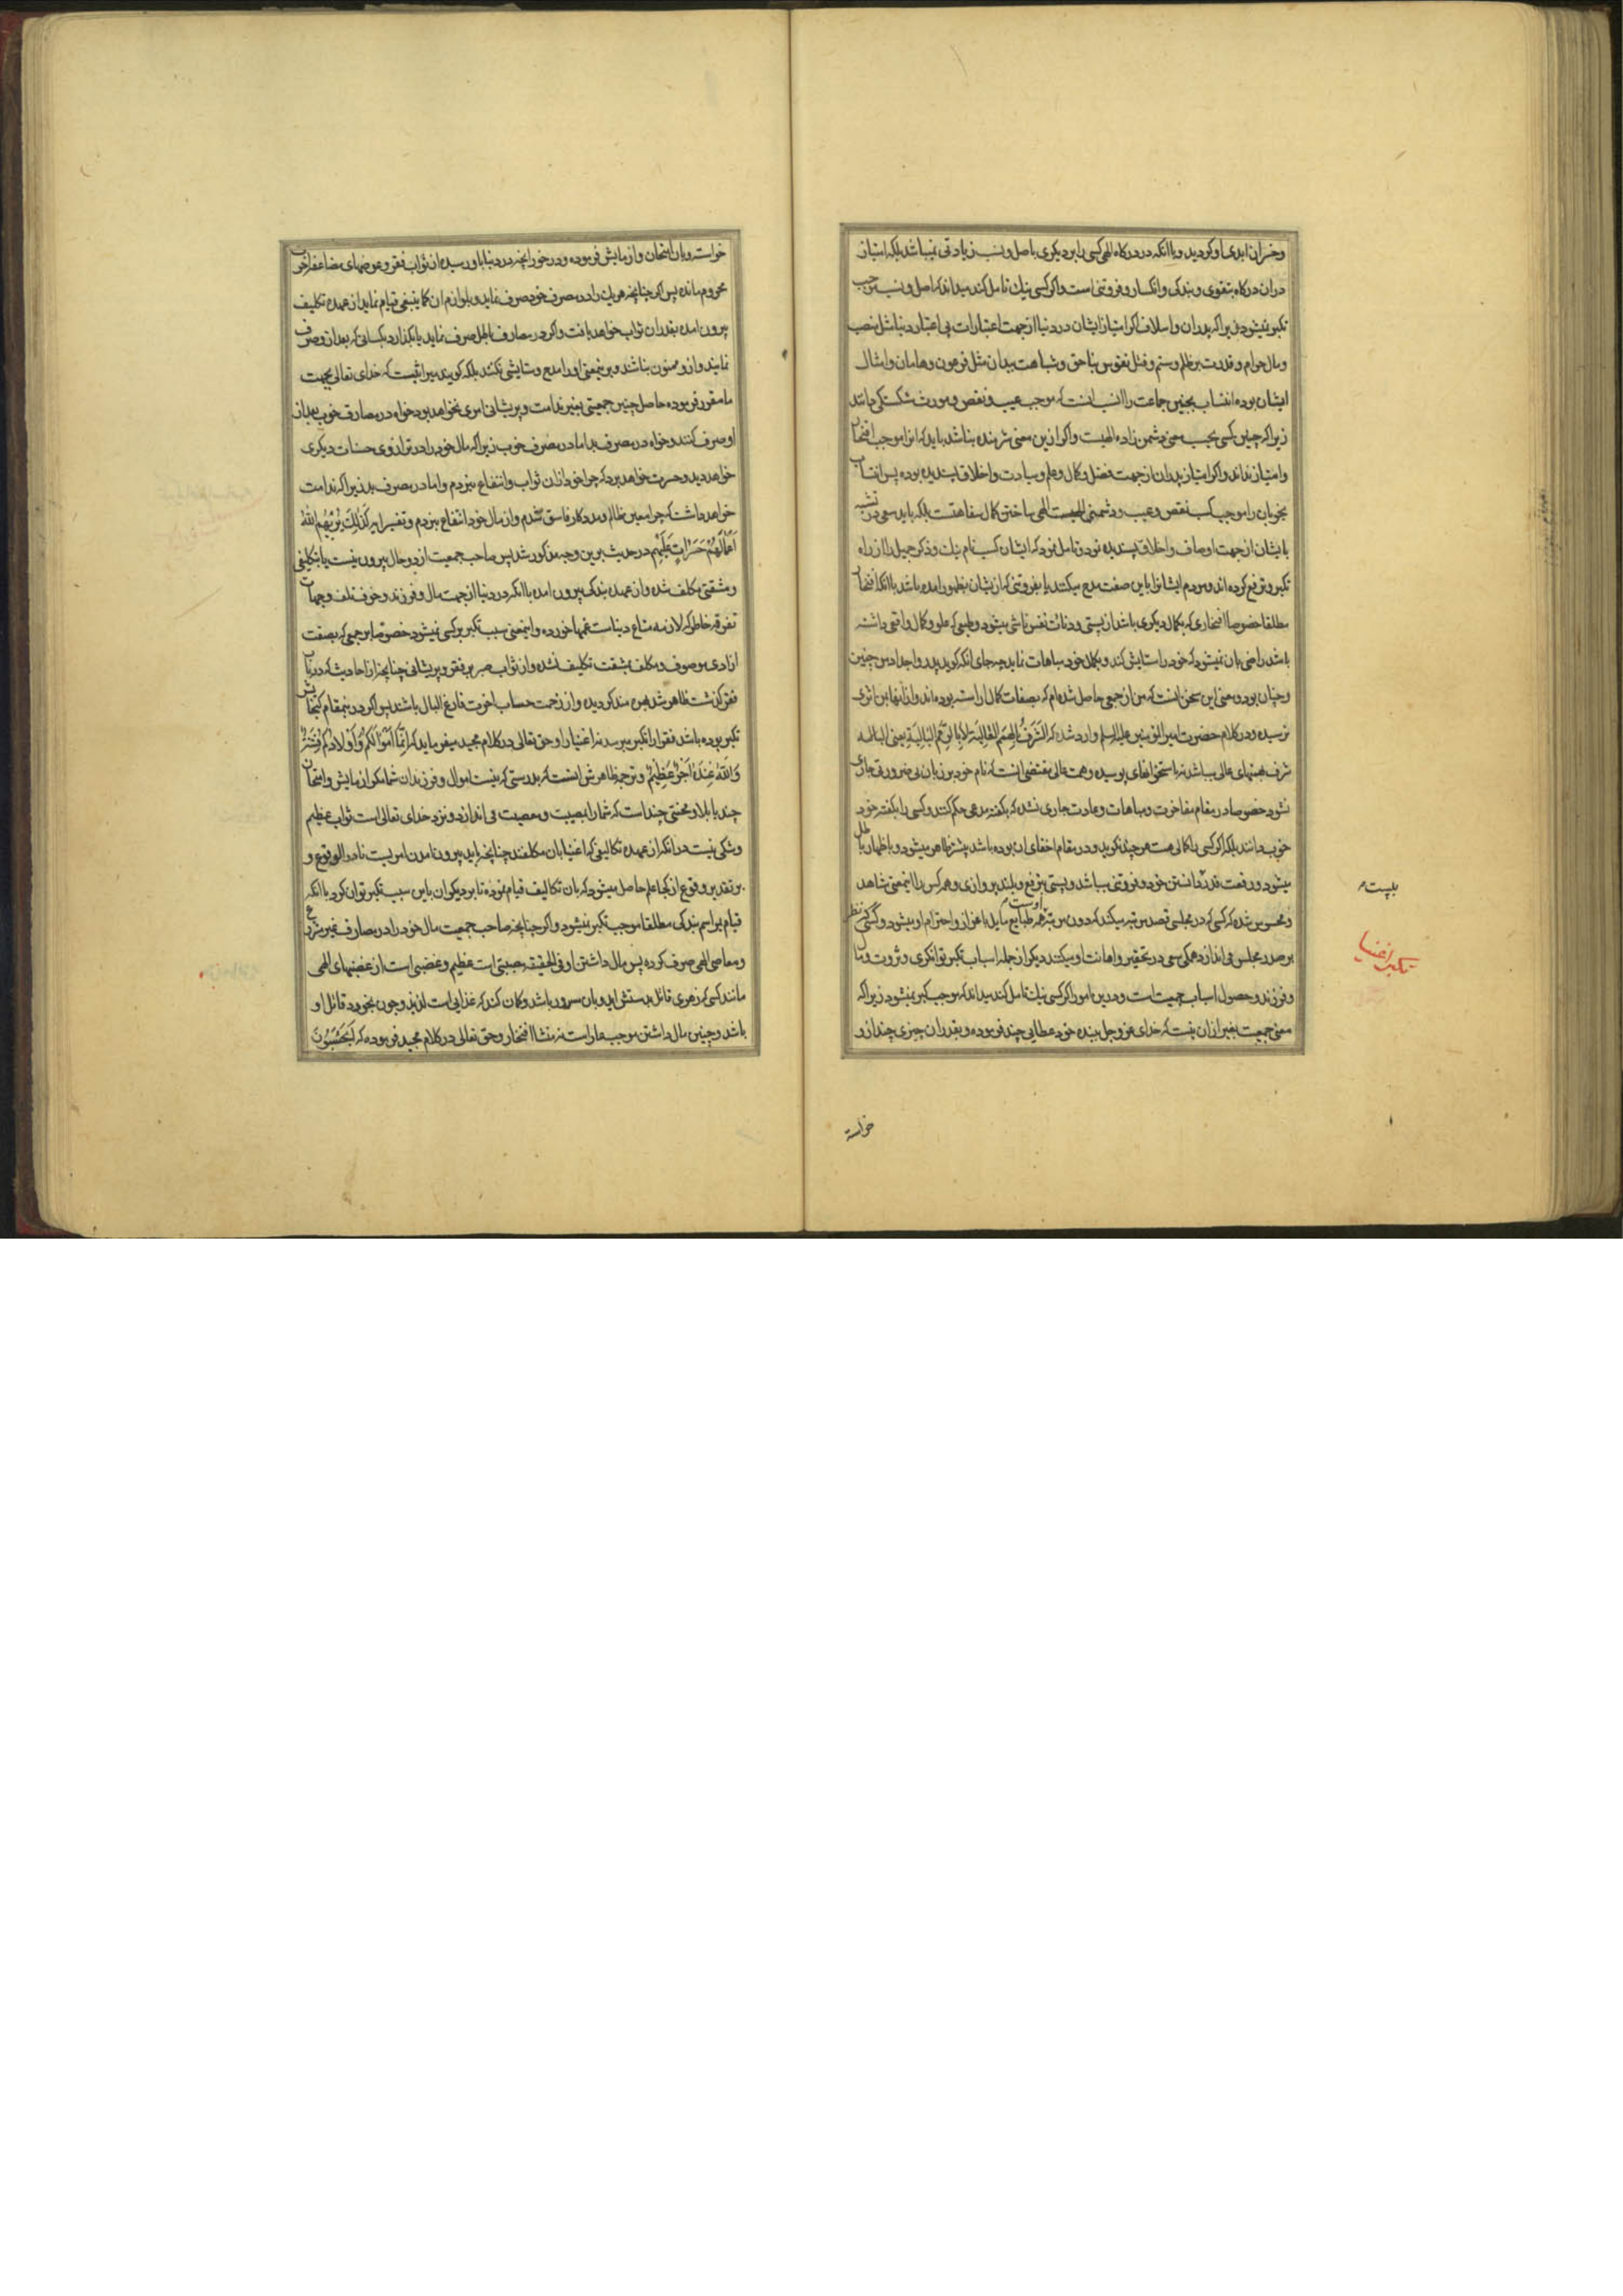 و خسران ابدی او کردید و باانکه در درکاه الهی کسی را بر دیکری باصل و نسب زیادتی نمیباشد بلکه امتیاز
دران درکاه بتقوی و بندکی و انکسار و فروتنی است و اکر کسی نیك تامل کند میداند که اصل و نسب موجب
تکبر نمیشود زیرا که پدران و اسلاف اکر امتیاز ایشان در دنیا از جهت اعتبارات بی اعتبار دنیا مثل منصب
و مال حرام و قدرت بر ظلم و ستم و قتل نفوس بناحق و شباهت ببدان مثل فرعون و هامان و امثال
ایشان بوده انتساب بچنین جماعت را انسب انست که موجب عیب و نقص و مورث شکستکی دانند
زیرا که چنین کسی بحسب معنی دشمن زاده الهیست و اکر ازین معنی شرمنده نباشد باید که انرا موجب افتخار
و امتیاز نداند و اکر امتیاز پدران از جهت فضل و کمال و علم و سیادت و اخلاق پسندیده بوده پس انتساب
بخوبان را موجب کسب نقص و عیب و دشمنی الهی ساختن کمال سفاهتست بلکه باید سعی در تشبه
بایشان از جهت اوصاف و اخلاق پسندیده نمود و تامل نمود که ایشان کسب نام نیك و ذکر جمیل را از راه
تکبر و ترفع کرده اند و مردم ایشانرا باین صفت مدح میکنند یا بفروتنی که از یشان بظهور امده باشد باانکه افتخار
مطلقا خصوصا افتخاری که بکمال دیکری باشد از پستی و دنائت نفس ناشی میشود و طبعی که علو و کمال واقعی داشته
باشد راضی بان نمیشود که خود را ستایش کند و بکمال خود مباهات نماید چه جای انکه کوید پدر و اجداد من چنین
و چنان بوده و معنی این سخن انست که من از جمعی حاصل شده ام که بصفات کمال اراسته بوده اند و از انها بمن اثری
نرسیده و در کلام حضرت امیر المؤمنین علیه السلم وارد شده که الشَّرَفُ بِالهِمَمِ العالِیَةِ لا بِالرِّمَمِ البالِیَةِ یعنی البته
شرف بهمتهای عالی میباشد نه باستخوانهای پوسیده و همت عالی مقتضی انست که نام خود بر زبان بی ضرورتی جاری
نشود خصوصا در مقام مفاخرت و مباهات و عادت جاری نشده که بکفته مدعی حکم کنند و کسی را بکفته خود
خوب دانند بلکه اکر کسی را کمالی هست هر چند نکوید و در مقام اخفای ان بوده باشد بیشتر ظاهر میشود و باظهار باطل
میشود و رفعت قدر دانستن خود و فروتنی میباشد و پستی بترفع و بلند پروازی و همه کس را اینمعنی مشاهد
و محسوس شده که کسی که در مجلسی قصد مرتبه میکند که دون مرتبه اوست همه طبایع مایل باعزاز و احترام او میشود و کسی که نظر
بر صدر مجلس می اندازد همکی سعی در تحقیر و اهانت او میکنند دیکر از جمله اسباب تکبر توانکری و ثروت و مال
و فرزند و حصول اسباب جمعیت است و درین امور اکر کسی نیك تامل کند میداند که موجب کبر نمیشود زیرا که
معنی جمعیت بغیر ازان نیست که خدای عز و جل ببنده خود عطایی چند فرموده و بقدر ان چیزی چند ازو
تکبر اغنیا
خواسته
خواسته و بان امتحان و ازمایش فرموده و در خور انچه در دنیا باو رسیده از ثواب فقر و عوضهای مضاعف اخرت
محروم مانده پس اکر چنانچه هر یك را در مصرف خود صرف نماید و بلوازم ان کما ینبغی قیام نماید از عهده تکلیف
بیرون امده بقدر ان ثواب خواهد یافت و اکر در مصارف باطل صرف نماید یا بکذارد بکسانی که بعد ازو صرف
نمایند و ازو ممنون نباشند و برینمعنی او را مدح و ستایشی نکنند بلکه کویند میراثیست که خدای تعالی بجهت
ما مقرر فرموده حاصل چنین جمعیتی بغیر ندامت و پریشانی امری نخواهد بود خواه در مصارف خوب بعد از
او صرف کنند و خواه در مصرف بد اما در مصرف خوب زیرا که مال خود را در ترازوی حسنات دیکری
خواهد دید و حسرت خواهد برد که چرا خود ازان ثواب و انتفاع نبردم و اما در مصرف بد زیرا که ندامت
خواهد داشت که چرا معین ظالم و مددکار فاسق شدم و از مال خود انتفاع نبردم و تفسیر ایه کَذٰلِكَ یُرِیهِمُ اللّٰهُ
اَعْمالَهُمْ حَسَراتٍ عَلَیْهِمْ در حدیث برین وجه مذکور شد پس صاحب جمعیت از دو حال بیرون نیست یا بتکلیفی
و مشقتی مکلف شده و از عهده بندکی بیرون امده باانکه در دنیا از جهت مال و فرزند و خوف تلف و جهات
تفرقه خاطر که لازمه متاع دنیاست غمها خورده و اینمعنی سبب تکبر بر کسی نمیشود خصوصا بر جمعی که بصفت
ازادی موصوف و مکلف بمشقت تکلیف نشده و از ثواب صبر بر فقر و پریشانی چنانچه از احادیث که در باب
فقر کذشت ظاهر شد بهره مند کردیده و از زحمت حساب اخرت فارغ البال باشند پس اکر در ینمقام کنجایش
تکبر بوده باشد فقرا را تکبر میرسد نه اغنیا را و حق تعالی در کلام مجید میفرماید که اِنَّما اَمْوالُکُمْ وَاَوْلادُکُمْ فِتْنَةٌ
وَاللّٰهُ عِنْدَهُ اَجْرٌ عَظِیمٌ و ترجمه ظاهرش اینست که بدرستی که نیست اموال و فرزندان شما مکر ازمایش و امتحان
چند یا بلا و محنتی چند است که شما را بمصیبت و معصیت می اندازد و نزد خدای تعالی است ثواب عظیم
و شکی نیست در انکه از عهده تکالیفی که اغنیا بان مکلفند چنانچه باید بیرون امدن امریست نادر الوقوع و
بر تقدیر وقوع از کجا علم حاصل میشود که بان تکالیف قیام نموده تا بر دیکران باین سبب تکبر توان کرد باانکه
قیام بمراسم بندکی مطلقا موجب تکبر نمیشود و اکر چنانچه صاحب جمعیت مال خود را در مصارف غیر مشروع
و معاصی الهی صرف کرده پس مال داشتن او فی الحقیقه مصیبتی است عظیم و غضبی است از غضبهای الهی
مانند کسی که زهری قاتل بدستش اید و بان مسرور باشد و کمان کند که غذایی است لذیذ و چون بخورد قاتل او
باشد و چنین مال داشتن موجب عار است نه منشا افتخار و حق تعالی در کلام مجید فرموده که اَیَحْسَبُونَ